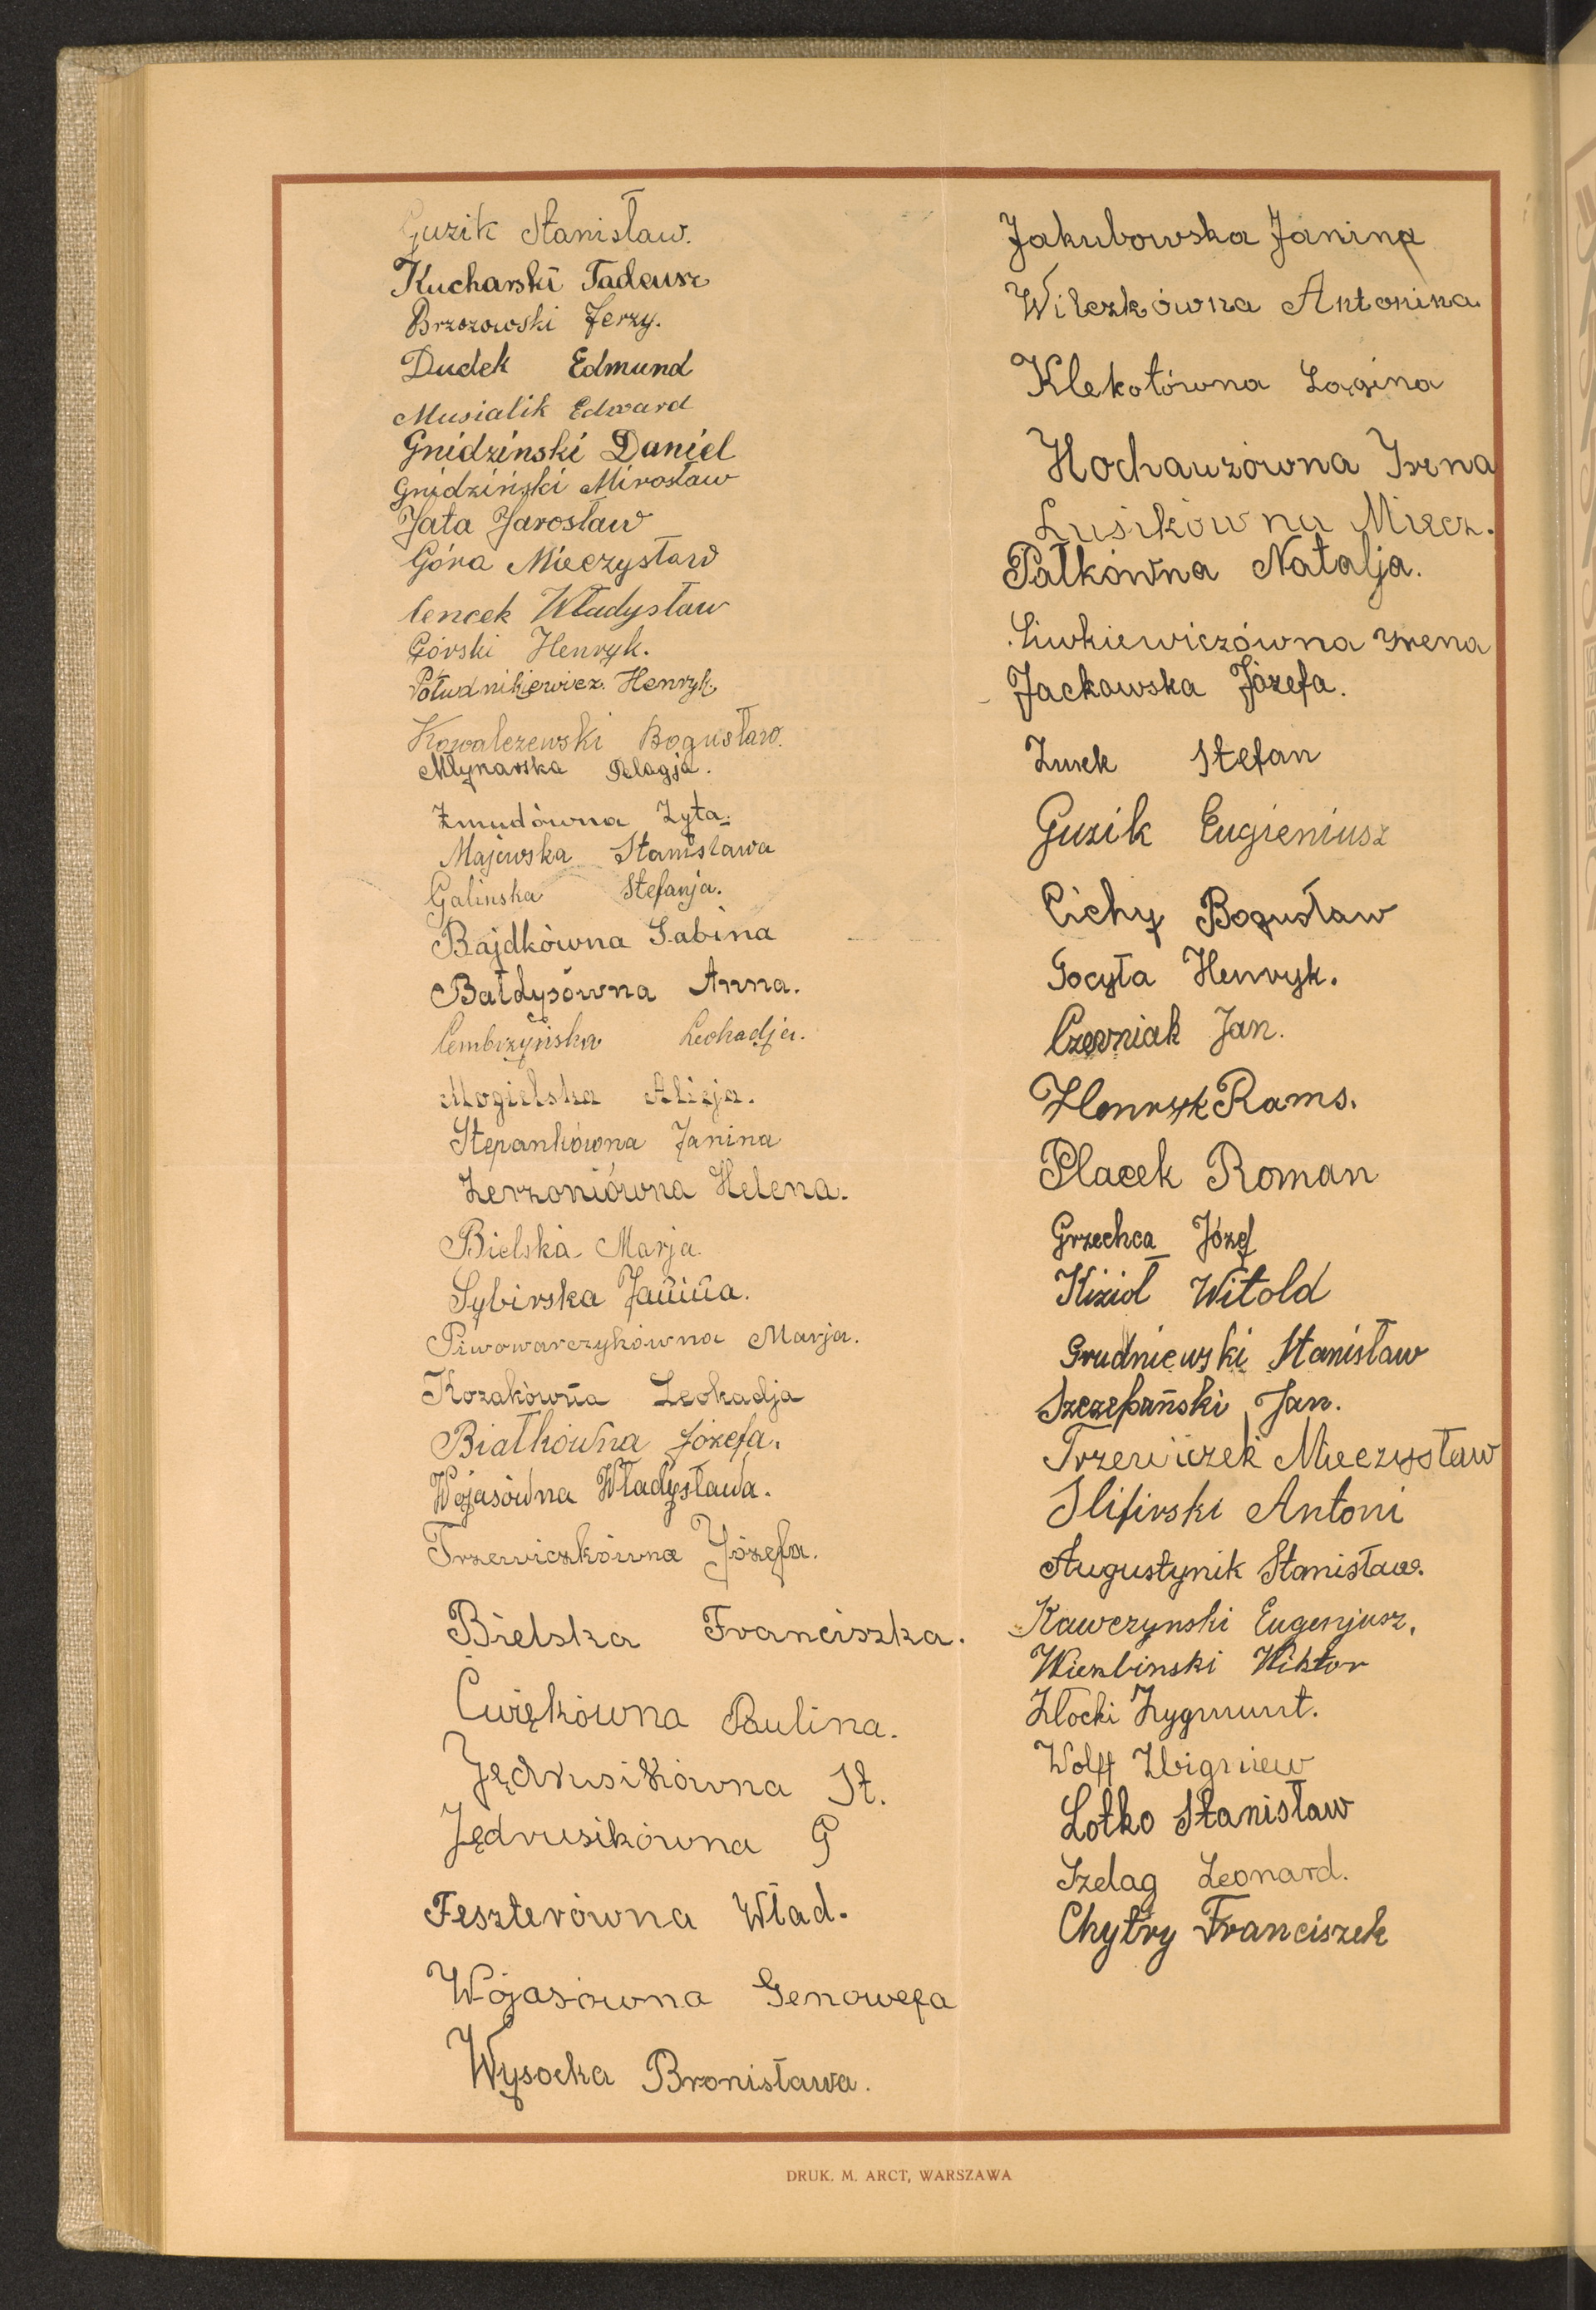 Guzik Stanisław.
Kucharski Tadeusz
Brzozowski Jerzy.
Dudek Edmund
Musialik Edward
Gnidziński Daniel
Gnidziński Mirosław
Jata Jarosław
Góra Mieczysław
Cencek Władysław
Górski Henryk.
Południkiewicz. Henryk.
Kowalczewski Bogusław.
Młynarska Pelagja.
Żmudówna Zyta.
Majewska Stanisława
Galinska Stefanja.
Bajdkówna Sabina
Bałdysówna Anna.
Cembrzyńska Leokadja.
Mogielska Alicja.
Stępankówna Janina
Zerzoniówna Helena.
Bielska Marja.
Sybirska Janina.
Piwowarczykówna Marja.
Kozakówna Leokadja
Białkówna Józefa.
Wojasówna Władysława.
Trzewiczkówna Józefa.
Bielska Franciszka.
Ćwiękówna Paulina.
Jędrusikówna St.
Jędrusikówna G
Feszterówna Wład.
Wojasówna Genowefa
Wysocka Bronisława.
Jakubowska Janina
Wilczkówna Antonina.
Klekotówna Longina
Hochauzówna Irena
Lusikówna Miecz.
Pałkówna Natalja.
Liwkiewiczówna Irena
Jackowska Józefa.
Żurek Stefan
Guzik Eugieniusz
Cichy Bogusław
Gocyła Henryk.
Czerniak Jan.
Henryk Rams.
Placek Roman
Grzechca Józef
Kizioł Witold
Grudniewski Stanisław
Szczepański Jan.
Trzewiczek Mieczysław
Slifirski Antoni
Augustynik Stanisław.
Kawczynski Eugenjusz.
Wierzbinski Wiktor
Złocki Zygmunt.
Wolff Zbigniew
Lotko Stanisław
Szelag Leonard.
Chytry Franciszek
DRUK. M. ARCT, WARSZAWA